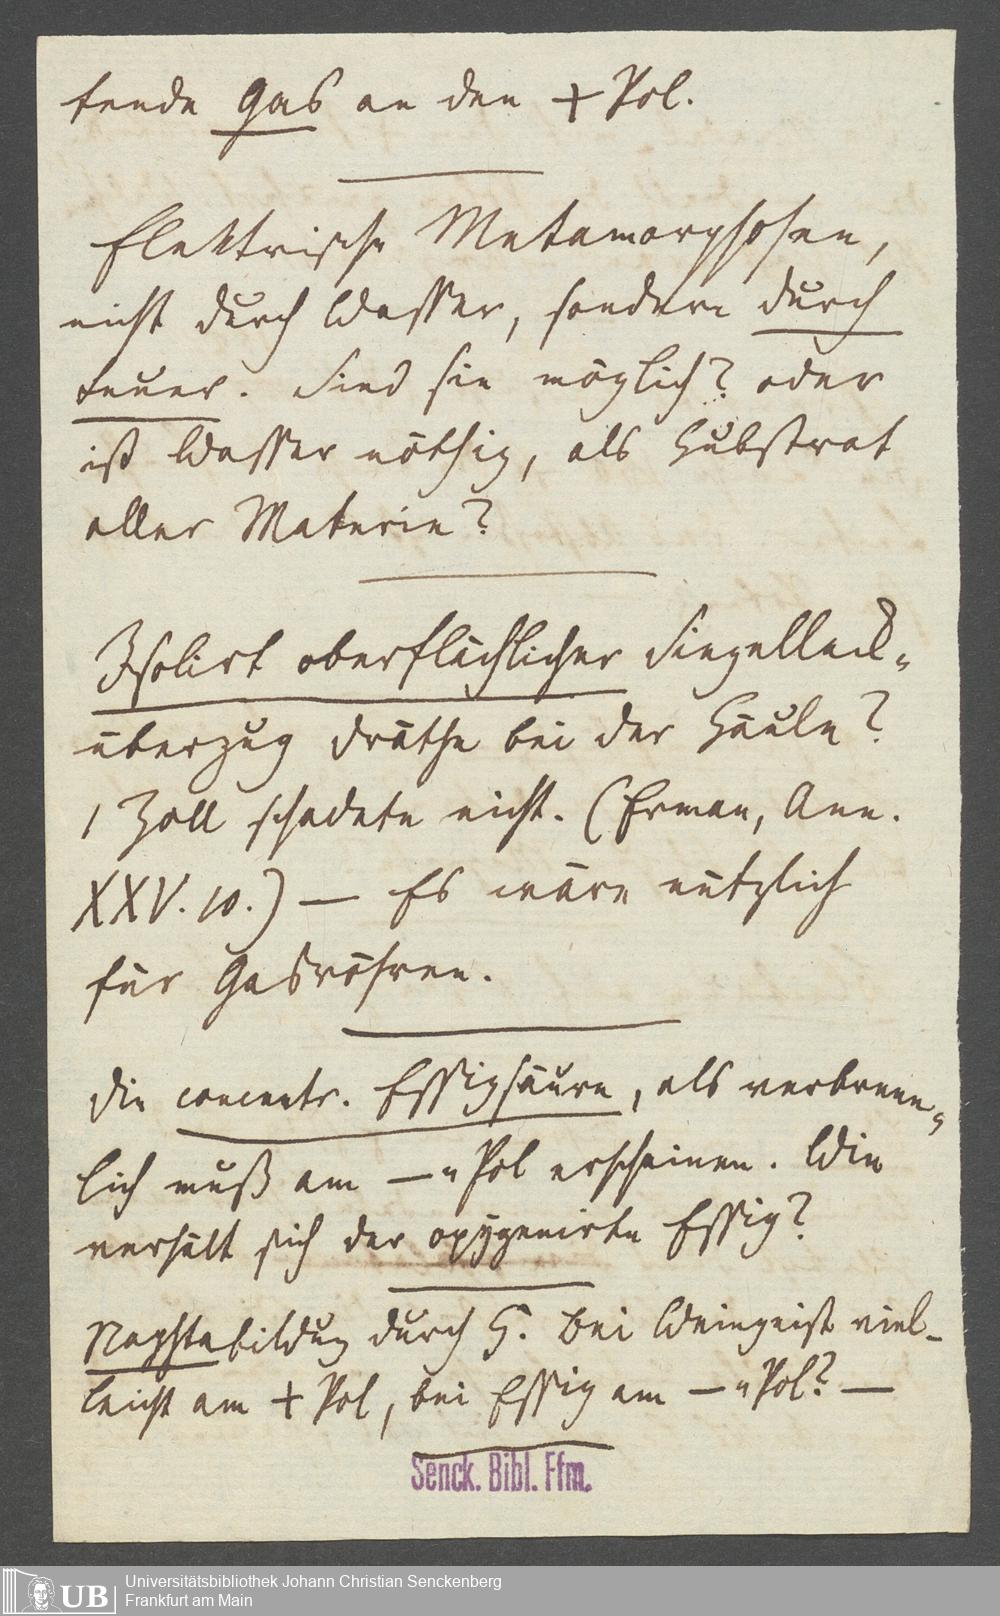 tende Gas an den + Pol.
Elektrische Metamorphosen,
nicht durch Wasser, sondern durch
Feuer. Sind sie möglich? oder
ist Wasser nöthig, als Substrat
aller Materie?
Isolirt oberflächlicher Siegellack-
überzug dräthe bei der Säule?
1 Zoll schadete nicht. (Erman, Ann.
XXV. 10.) — Es wäre nützlich
für Gasröhren.
Die concentr. Essigsäure, als verbrenn-
lich muß am —"Pol erscheinen. Wie
verhält sich der oxygenirte Essig?
Naphtabildung durch S. bei Weingeist viel-
leicht am + Pol, bei Essig am —"Pol? —
Senck. Bibl. Ffm.
UB
Universitätsbibliothek Johann Christian Senckenberg
Frankfurt am Main